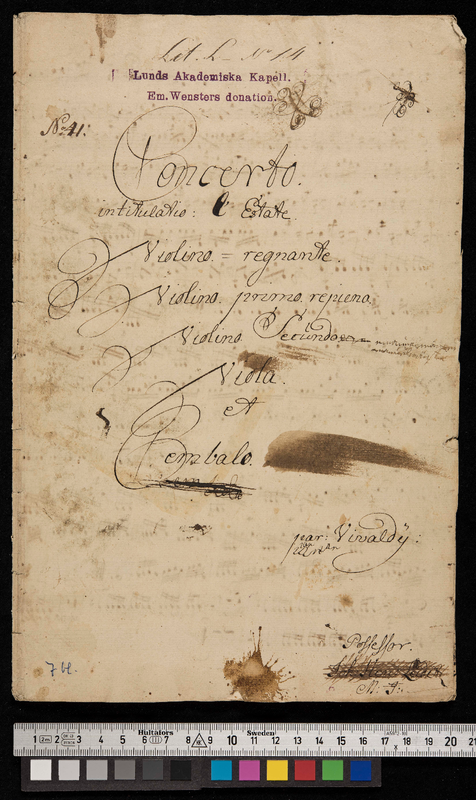 Lit. L. No 14
Lunds Akademiska Kapell.
Em. Wensters donation.
No 41:
Concerto.
intitulatio: l'Estate.
Violino = regnante.
Violino primo repieno
Violino Secundo
Viola.
et
Cembalo.
par: Vivaldÿ:
Possessor.
7 bl.
1 2 3 4 5 6 7 8 9 10 11 12 13 14 15 16 17 18 19 20 21
Hultafors
Sweden